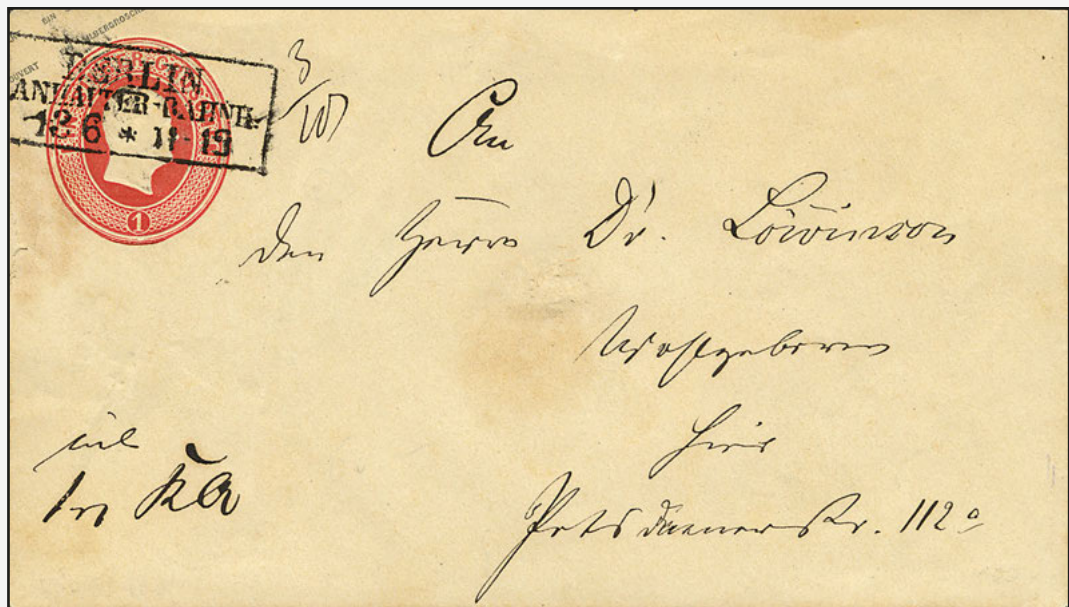 BERLIN
ANHALTER-BAHNH.
13 6 * 11-12
1
3/10
An
den Herrn Dr. Löwinson
Wohlgeboren
hier
Potsdamerstr. 112a